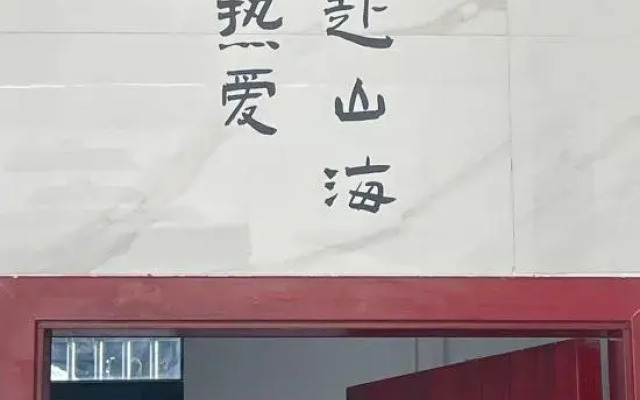 热爱
赴山海